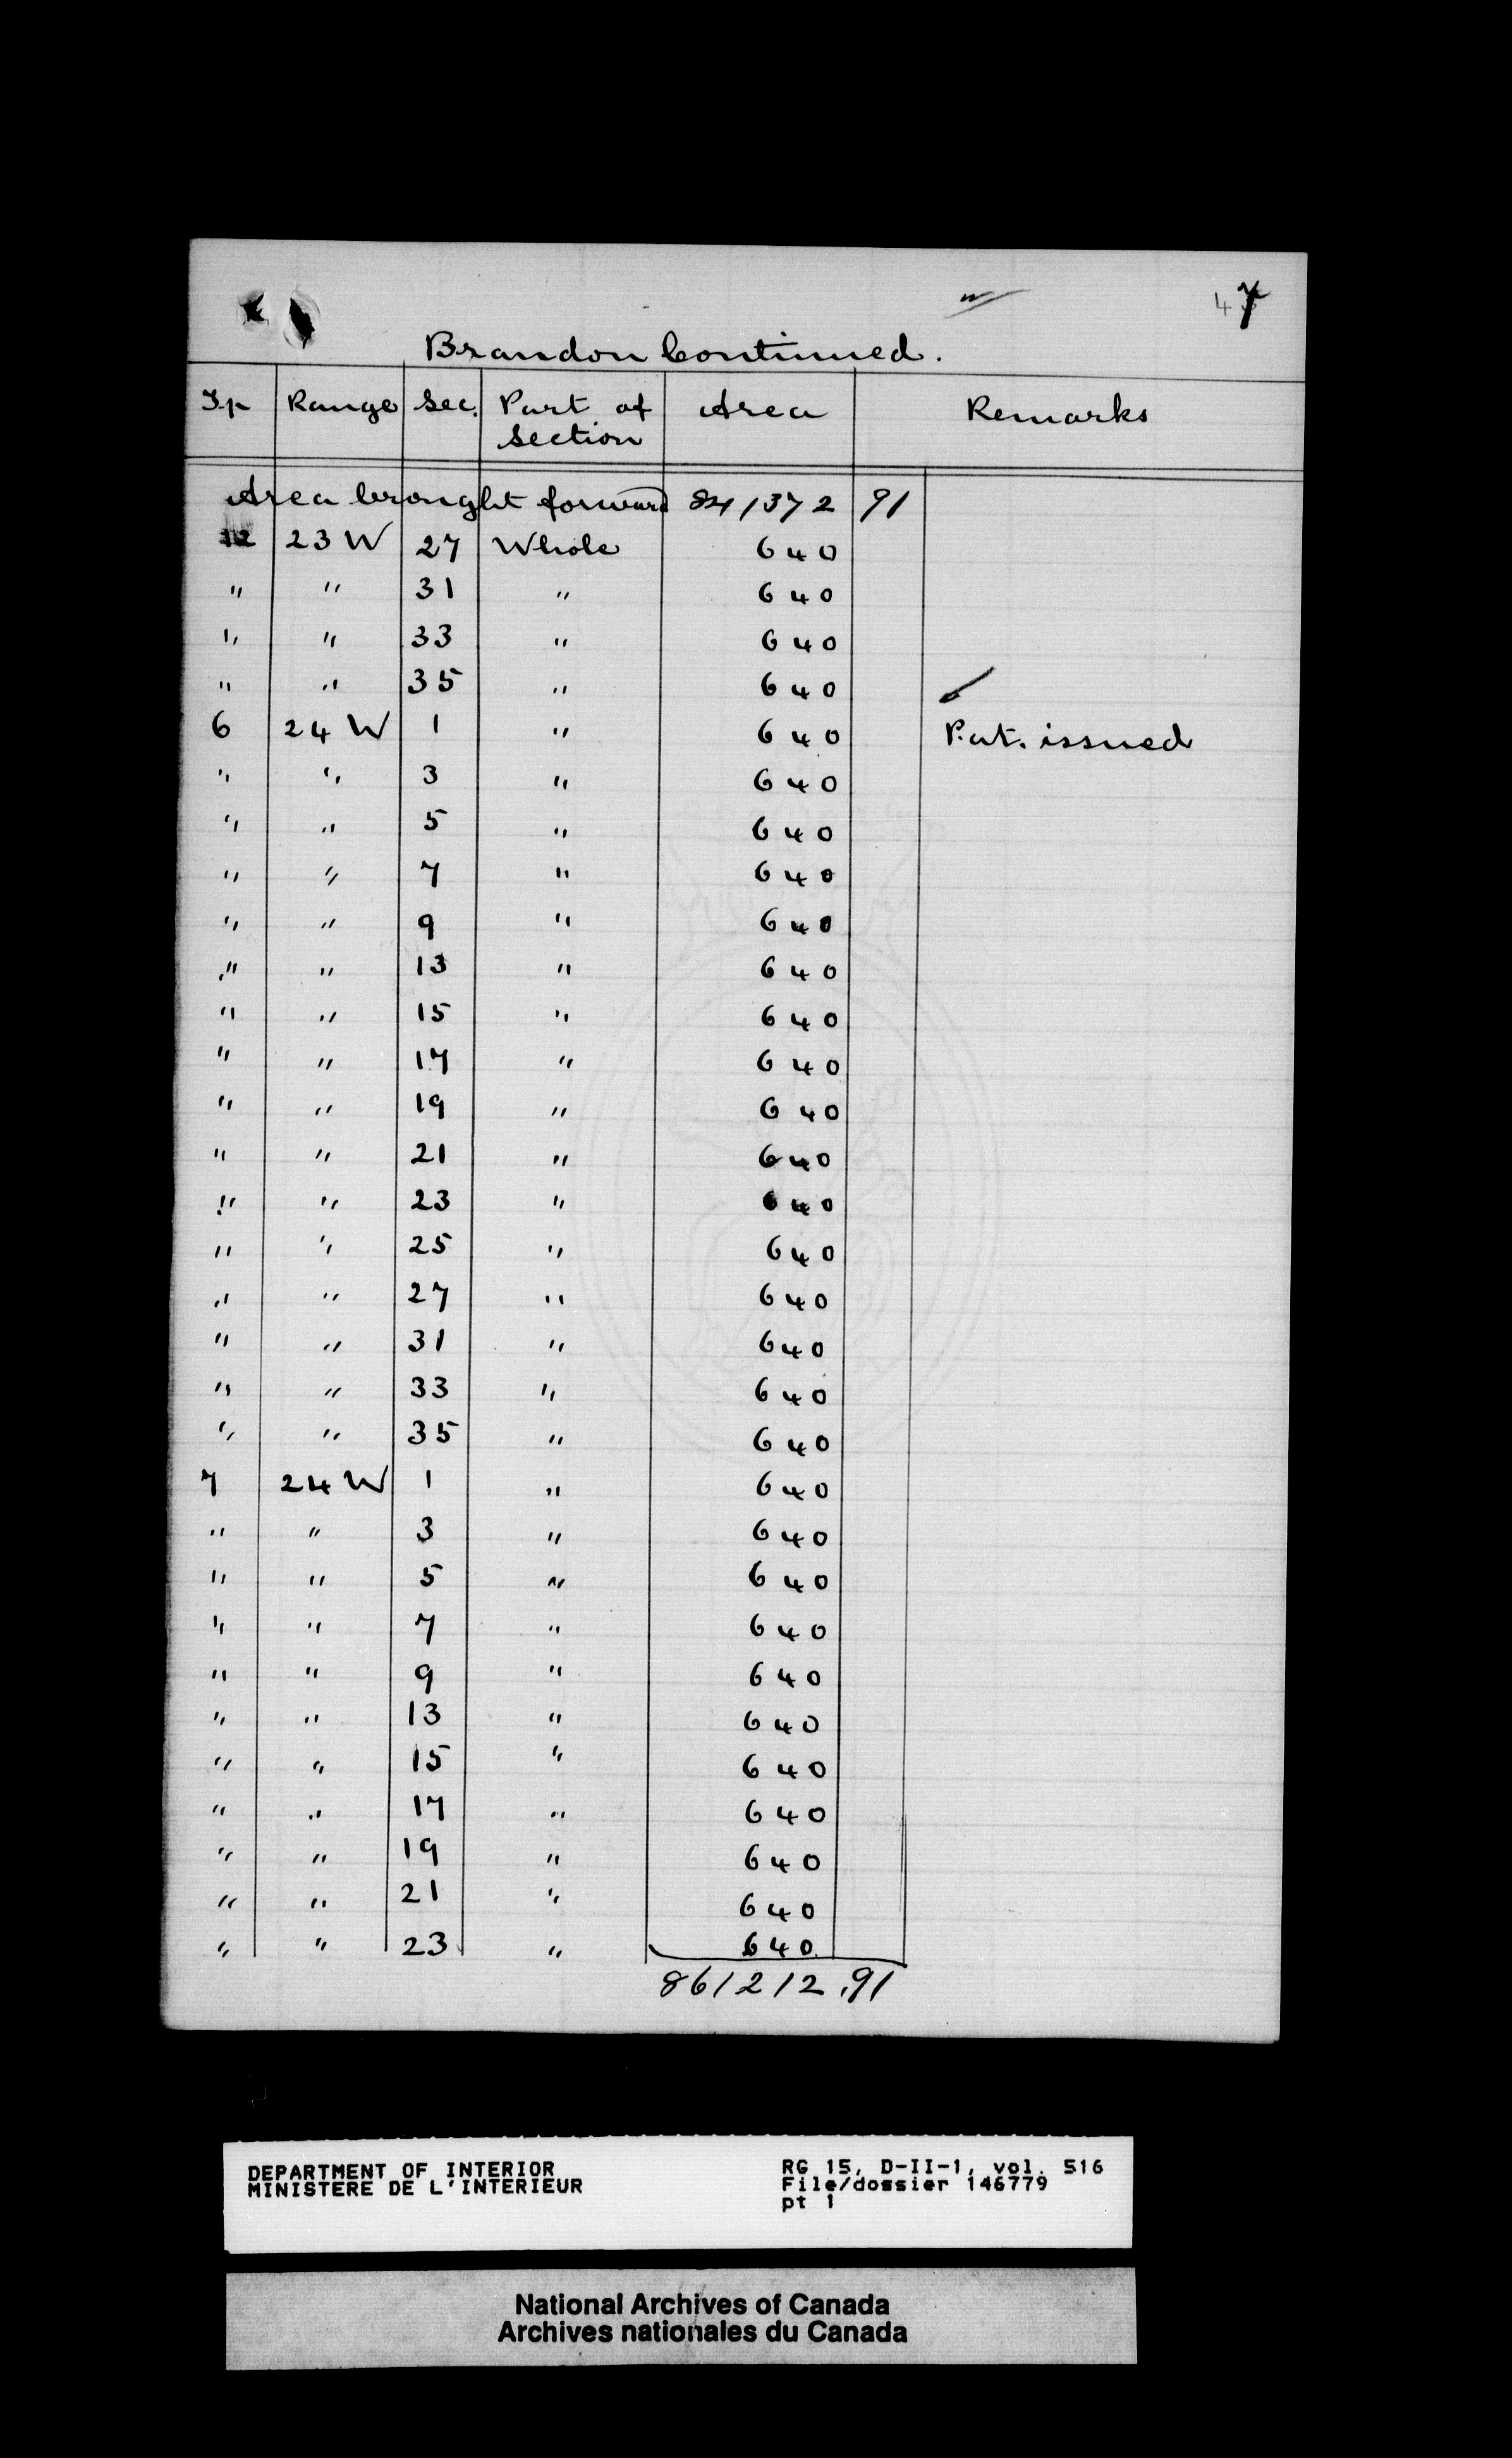 7
Brandon Continued.
Tp Range Sec. Part of section Area Remarks
Area brought forward 841372 91
12 23 W 27 Whole 640
" " 31 " 640
" " 33 " 640
" " 35 " 640
6 24 W 1 " 640 Pat. issued
" " 3 " 640
" " 5 " 640
" " 7 " 640
" " 9 " 640
" " 13 " 640
" " 15 " 640
" " 17 " 640
" " 19 " 640
" " 21 " 640
" " 23 " 640
" " 25 " 640
" " 27 " 640
" " 31 " 640
" " 33 " 640
" " 35 " 640
7 24 W 1 " 640
" " 3 " 640
" " 5 " 640
" " 7 " 640
" " 9 " 640
" " 13 " 640
" " 15 " 640
" " 17 " 640
" " 19 " 640
" " 21 " 640
" " 23 " 640
861212.91
DEPARTMENT OF INTERIOR RG 15, D-II-1, vol. 516
MINISTERE DE L'INTERIEUR File/dossier 146779
pt 1
National Archives of Canada
Archives nationales du Canada